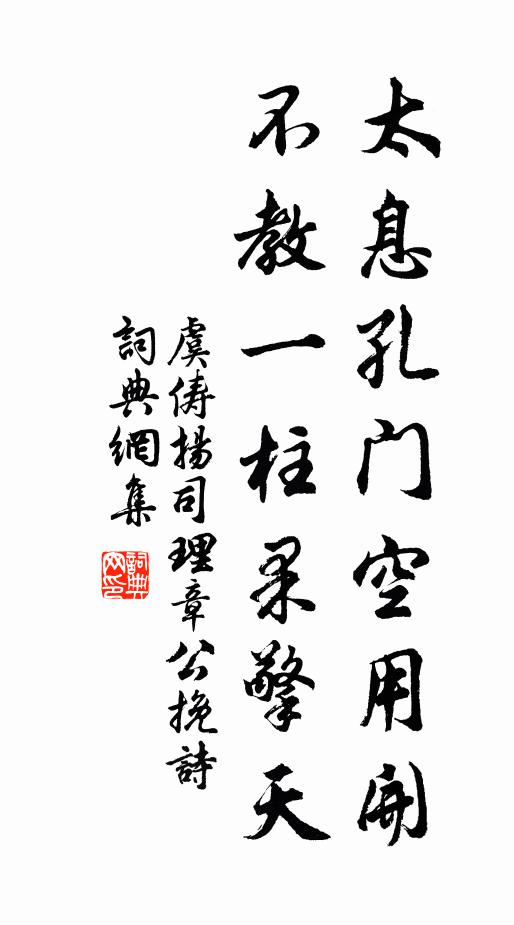 太息孔門空用開
不教一柱果擎天
虞儔揚司理章公挽詩
詞典網集
詞典网印